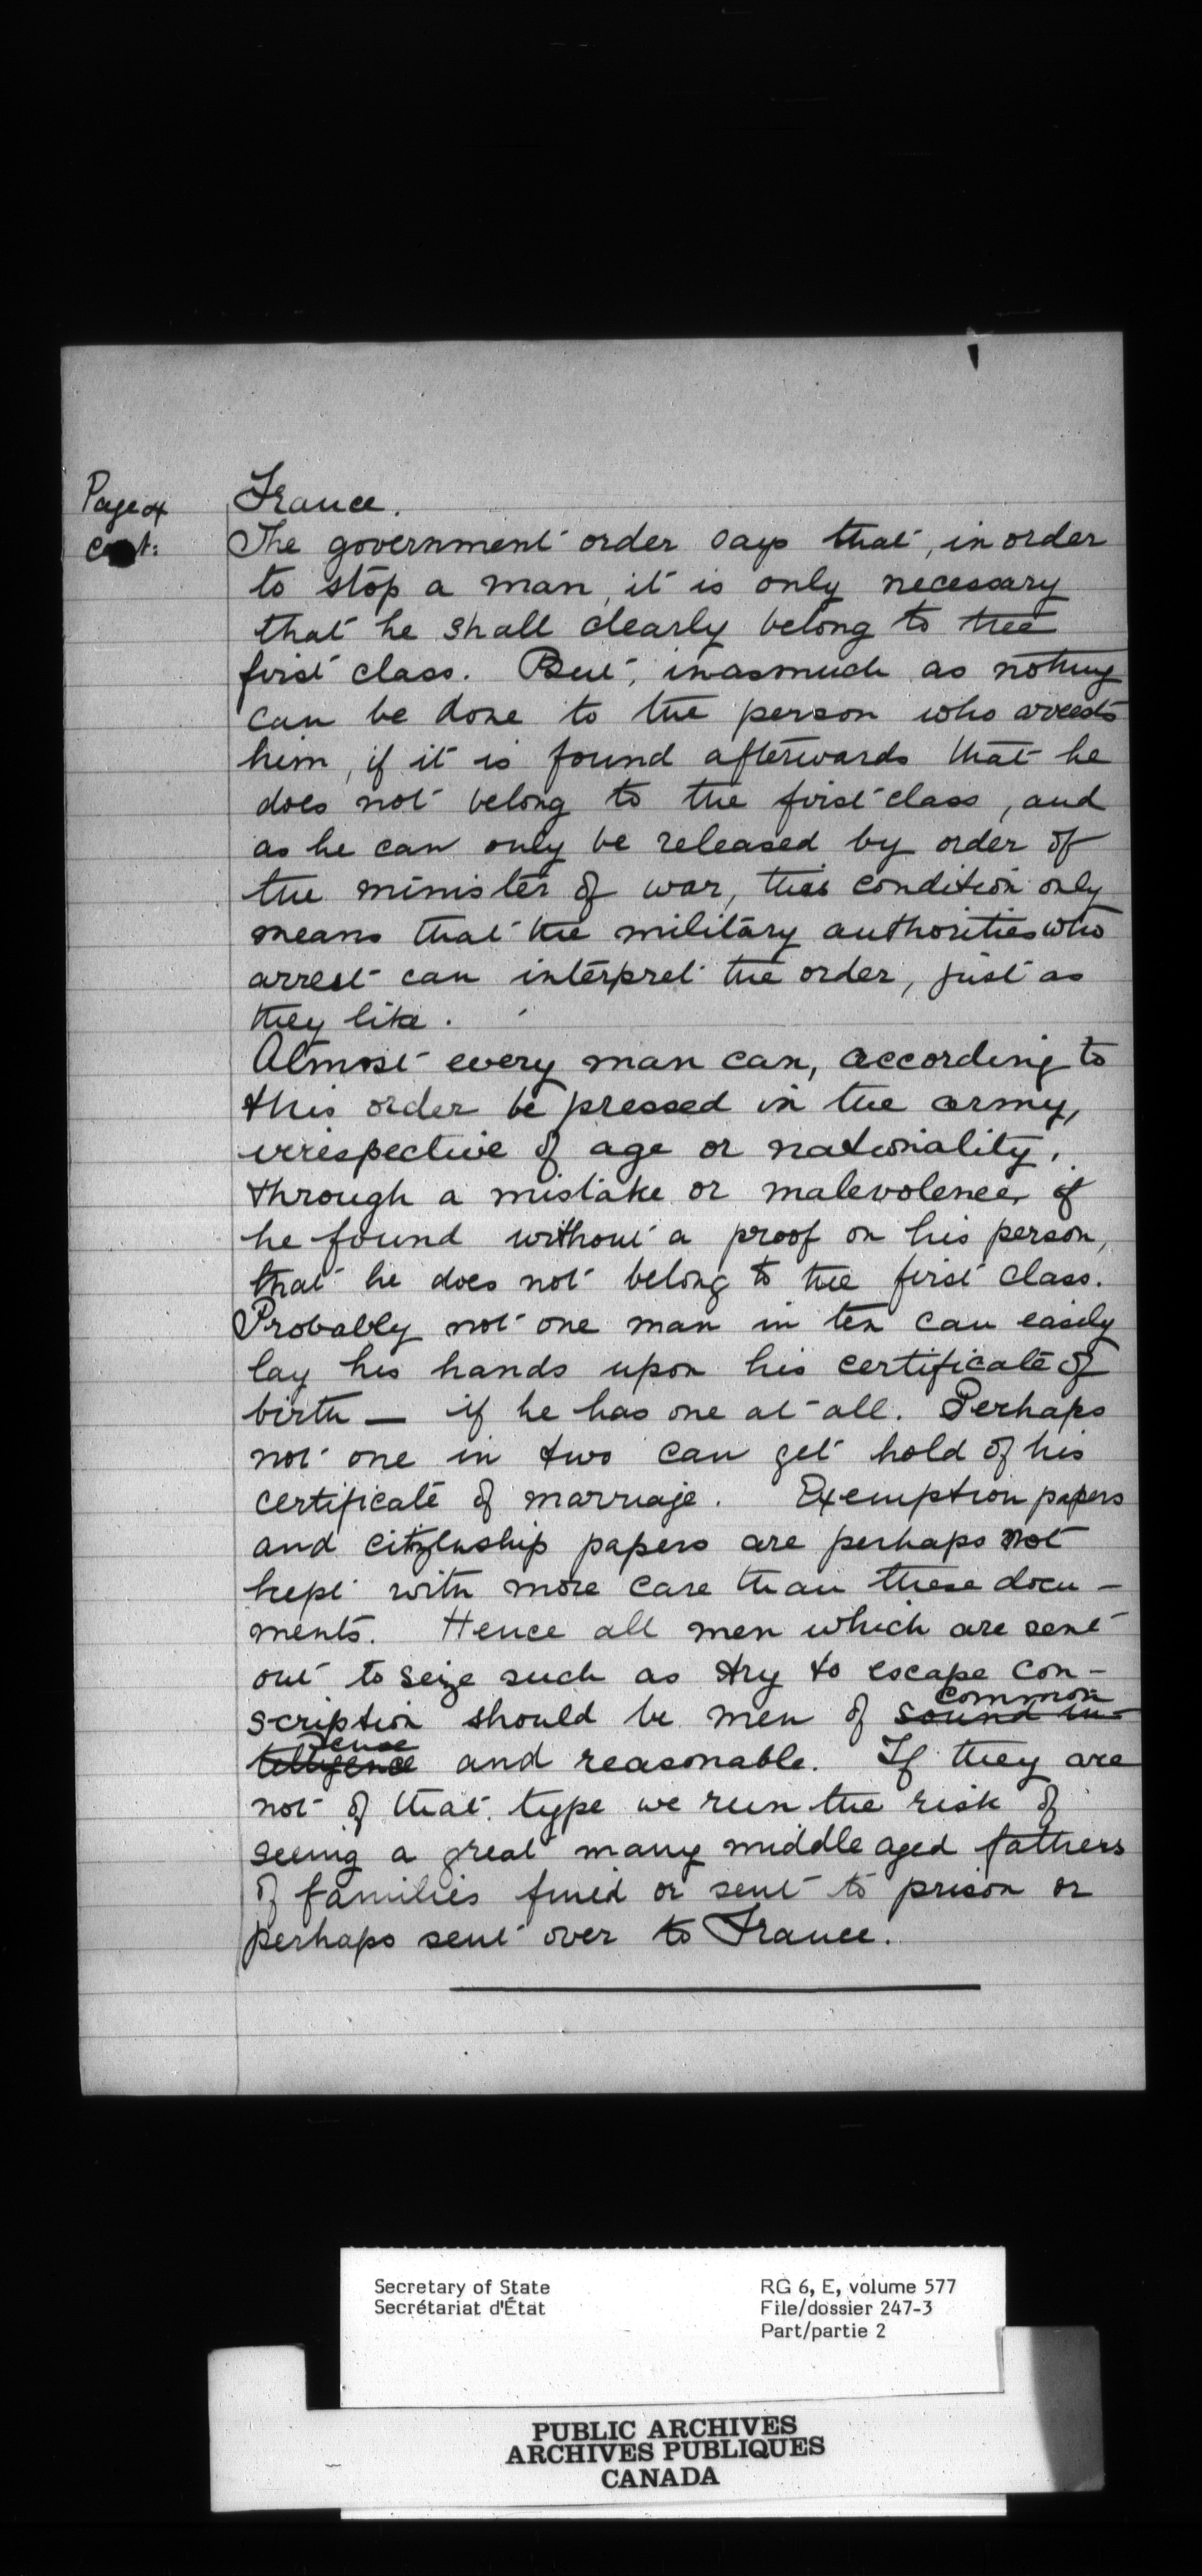 Page 4
France.
The government order says that, in order
to stop a man, it is only necessary
that he shall clearly belong to the
first class. But, inasmuch as nothing
can be done to the person who arrests
him, if it is found afterwards that he
does not belong to the first class, and
as he can only be released by order of
the minister of war, this condition only
means that the military authorities who
arrest can interpret the order, just as
they like.
Almost every man can, according to
this order be pressed in the army,
irrespective of age or nationality,
through a mistake or malevolence, if
he found without a proof on his person,
that he does not belong to the first class.
Probably not one man in ten can easily
lay his hands upon his certificate of
birth — if he has one at all. Perhaps
not one in two can get hold of his
certificate of marriage. Exemption papers
and citizenship papers are perhaps not
kept with more care than these docu-
ments. Hence all men which are sent
out to seize such as try to escape con-
common
scription should be men of sound in-
sense
telligence and reasonable. If they are
not of that type we run the risk of
seeing a great many middle aged fathers
of families fined or sent to prison or
perhaps sent over to France.
Secretary of State
Secrétariat d'État
RG 6, E, volume 577
File/dossier 247-3
Part/partie 2
PUBLIC ARCHIVES
ARCHIVES PUBLIQUES
CANADA